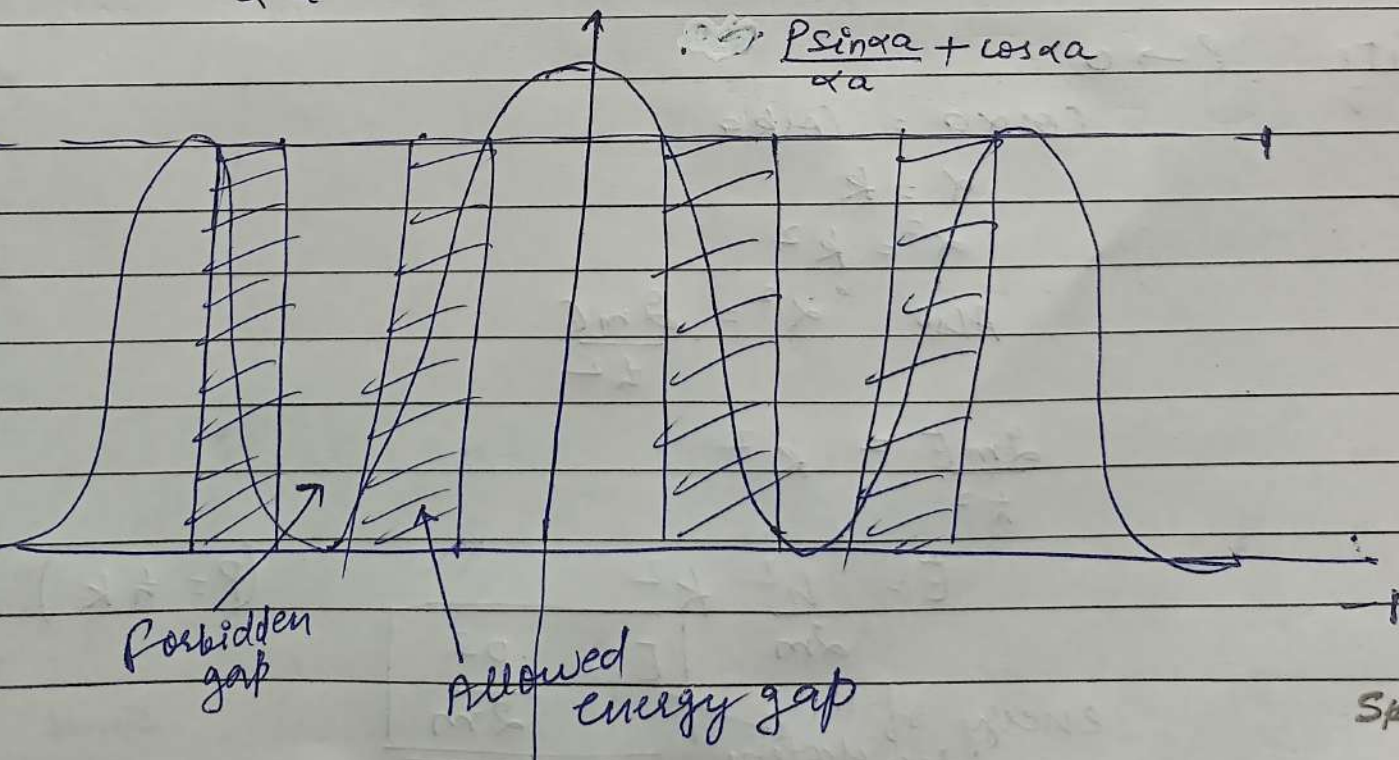 P sinαa / αa + cosαa
Forbidden
gap
Allowed
energy gap
Sp